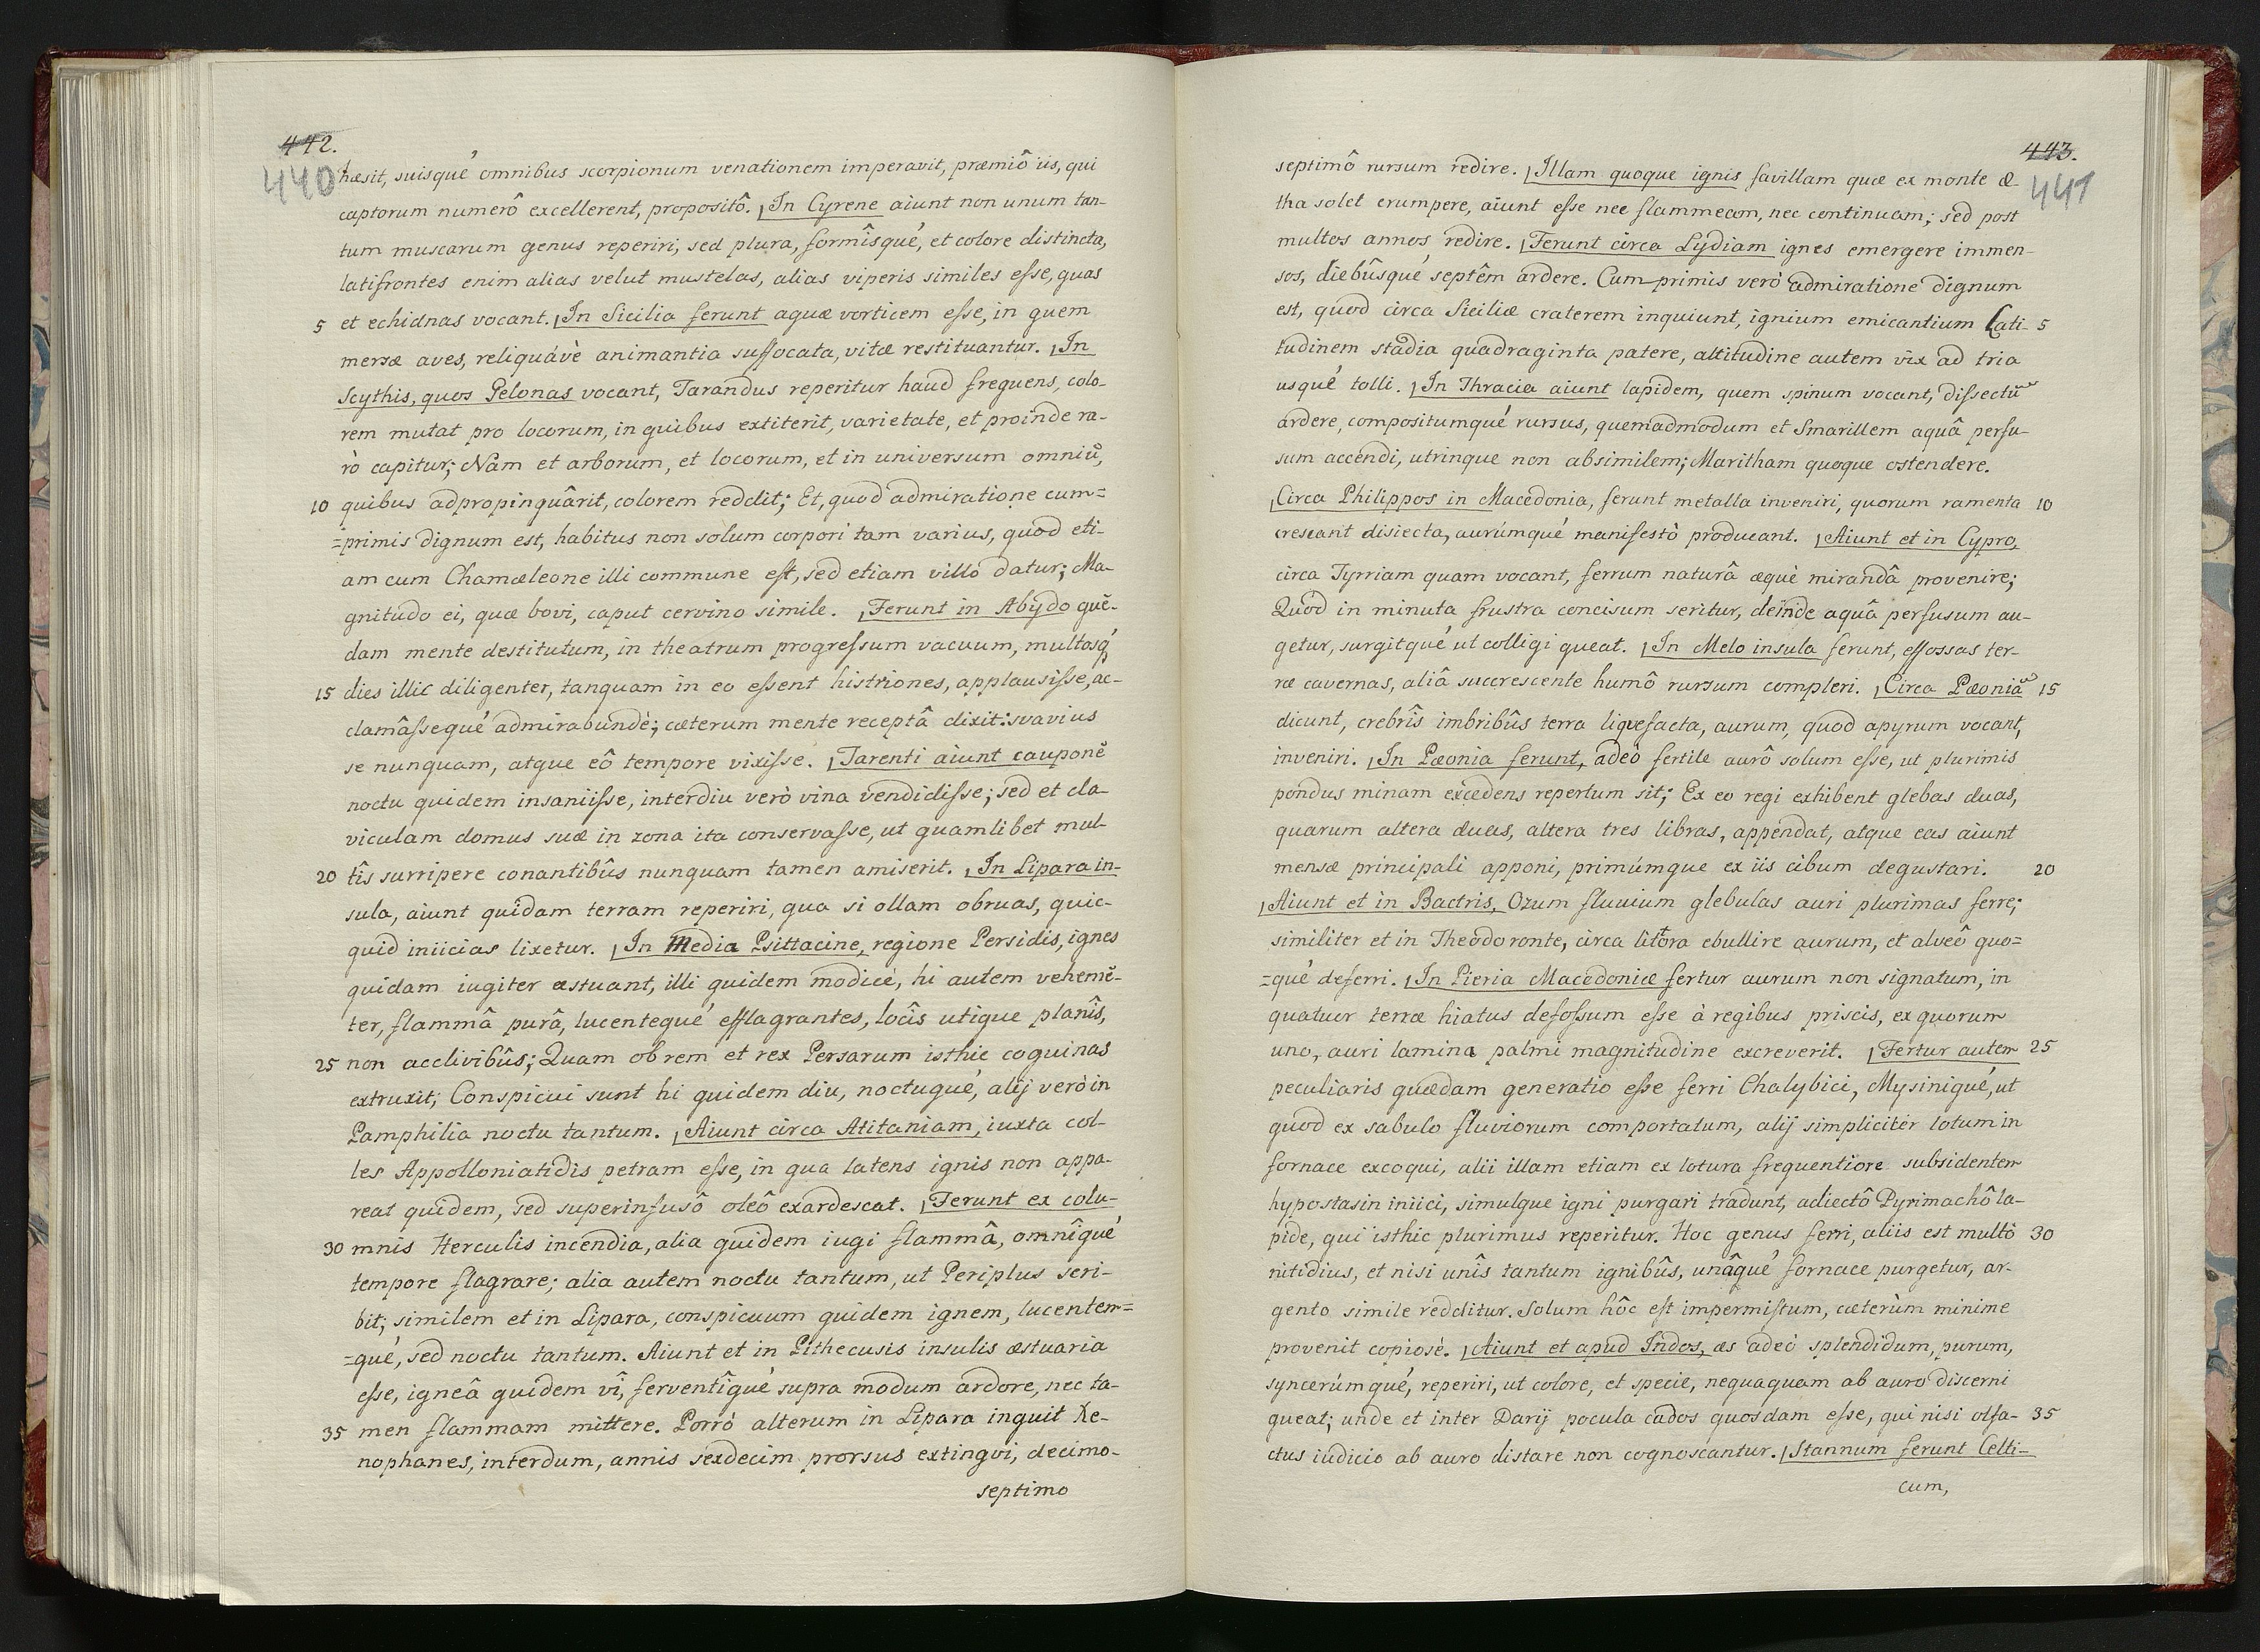 442.
440
hæsit, suisqué omnibus scorpionum venationem imperavit, præmiô iis, qui
captorum numerô excellerent, propositô. In Cyrene aiunt non unum tan-
tum muscarum genus reperiri, sed plura, formîsqué, et colore distincta,
latifrontes enim alias velut mustelas, alias viperis similes esse, quas
5 et echidnas vocant. In Sicilia ferunt aquæ vorticem esse, in quem
mersæ aves, reliquávè animantia suffocata, vitæ restituantur. In
Scythis, quos Gelonas vocant, Tarandus reperitur haud frequens, colo-
rem mutat pro locorum, in quibus extiterit, varietate, et proinde ra-
rò capitur; Nam et arborum, et locorum, et in universum omniū,
10 quibus adpropinquârit, colorem reddit; Et, quod admiratione cum=
=primis dignum est, habitus non solum corpori tam varius, quod eti-
am cum Chamæleone illi commune est, sed etiam villo datur; Ma-
gnitudo ei, quæ bovi, caput cervino simile. Ferunt in Abydo quē-
dam mente destitutum, in theatrum progressum vacuum, multosq́
15 dies illic diligenter, tanquam in eo essent histriones, applausisse, ac-
clamâssequé admirabundè; cæterum mente receptâ dixit: svavius
se nunquam, atque eô tempore vixisse. Tarenti aiunt cauponē
noctu quidem insaniisse, interdiu verò vina vendidisse; sed et cla-
viculam domus suæ in zona ita conservasse, ut quamlibet mul-
20 tîs surripere conantibûs nunquam tamen amiserit. In Lipara in-
sula, aiunt quidam terram reperiri, qua si ollam obruas, quic-
quid iniicias lixetur. In Media Psittacine, regione Persidis, ignes
quidam iugiter æstuant, illi quidem modicè, hi autem vehemē-
ter, flammâ purâ, lucentequé efflagrantes, locîs utique planîs,
25 non acclivibûs; Quam ob rem et rex Persarum isthic coquinas
extruxit; Conspicui sunt hi quidem diu, noctuqué, alij verò in
Pamphilia noctu tantum. Aiunt circa Atitaniam, iuxta col-
les Appolloniatidis petram esse, in qua latens ignis non appa-
reat quidem, sed superinfusô oleô exardescat. Ferunt ex colu-
30 mnis Herculis incendia, alia quidem iugi flammâ, omnîqué
tempore flagrare; alia autem noctu tantum, ut Periplus scri-
bit; similem et in Lipara, conspicuum quidem ignem, lucentem=
=qué, sed noctu tantum. Aiunt et in Pithecusis insulis æstuaria
esse, igneâ quidem vî, ferventîqué supra modum ardore, nec ta-
35 men flammam mittere. Porrò alterum in Lipara inquit Xe-
nophanes, interdum, annis sexdecim prorsus extingvi, decimo-
septimo
443.
441
septimô rursum redire. Illam quoque ignis favillam quæ ex monte Æ-
tha solet erumpere, aiunt esse nec flammeam, nec continuam; sed post
multos annos redire. Ferunt circa Lydiam ignes emergere immen-
sos, diebûsqué septêm ardere. Cum primis verò admiratione dignum
est, quod circa Siciliæ craterem inquiunt, ignium emicantium Lati- 5
tudinem stadia quadraginta patere, altitudine autem vix ad tria
usqué tolli. In Thracia aiunt lapidem, quem spinum vocant, dissectū
ardere, compositumqué rursus, quemadmodum et Smarillem aquâ perfu-
sum accendi, utrinque non absimilem; Maritham quoque ostendere.
Circa Philippos in Macedonia, ferunt metalla inveniri, quorum ramenta 10
crescant disiecta, aurúmqué manifestò producant. Aiunt et in Cypro,
circa Tyrriam quam vocant, ferrum naturâ æquè mirandâ provenire;
Quod in minuta frustra concisum seritur, deinde aquâ perfusum au-
getur, surgitqué ut colligi queat. In Melo insula ferunt, effossas ter-
ræ cavernas, aliâ succrescente humô rursum compleri. Circa Pæoniā 15
dicunt, crebrîs imbribûs terra liquefacta, aurum, quod apyrum vocant,
inveniri. In Pæonia ferunt, adeò fertile aurô solum esse, ut plurimis
pondus minam excedens repertum sit; Ex eo regi exhibent glebas duas,
quarum altera duas, altera tres libras, appendat, atque eas aiunt
mensæ principali apponi, primúmque ex iis cibum degustari. 20
Aiunt et in Bactris, Ozum fluvium glebulas auri plurimas ferre;
similiter et in Theodoronte, circa littora ebullire aurum, et alveô quo=
=qué deferri. In Pieria Macedoniæ fertur aurum non signatum, in
quatuor terræ hiatus defossum esse à regibus priscis, ex quorum
uno, auri lamina palmi magnitudine excreverit. Fertur autem 25
peculiaris quædam generatio esse ferri Chalybici, Mysiniqué, ut
quod ex sabulo fluviorum comportatum, alij simpliciter lotum in
fornace excoqui, alii illam etiam ex lotura frequentiore subsidentem
hypostasin iniici, simulque igni purgari tradunt, adiectô Pyrimachô la-
pide, qui isthic plurimus reperitur. Hoc genus ferri, aliis est multò 30
nitidius, et nisi unîs tantum ignibûs, unâqué fornace purgetur, ar-
gento simile redditur. Solum hôc est impermistum, cæterùm minime
provenit copiosè. Aiunt et apud Indos, æs adeò splendidum, purum,
syncerúmqué, reperiri, ut colore, et specie, nequaquam ab auro discerni
queat; unde et inter Darij pocula cados quosdam esse, qui nisi olfa- 35
ctus iudicio ab auro distare non cognoscantur. Stannum ferunt Celti-
cum,